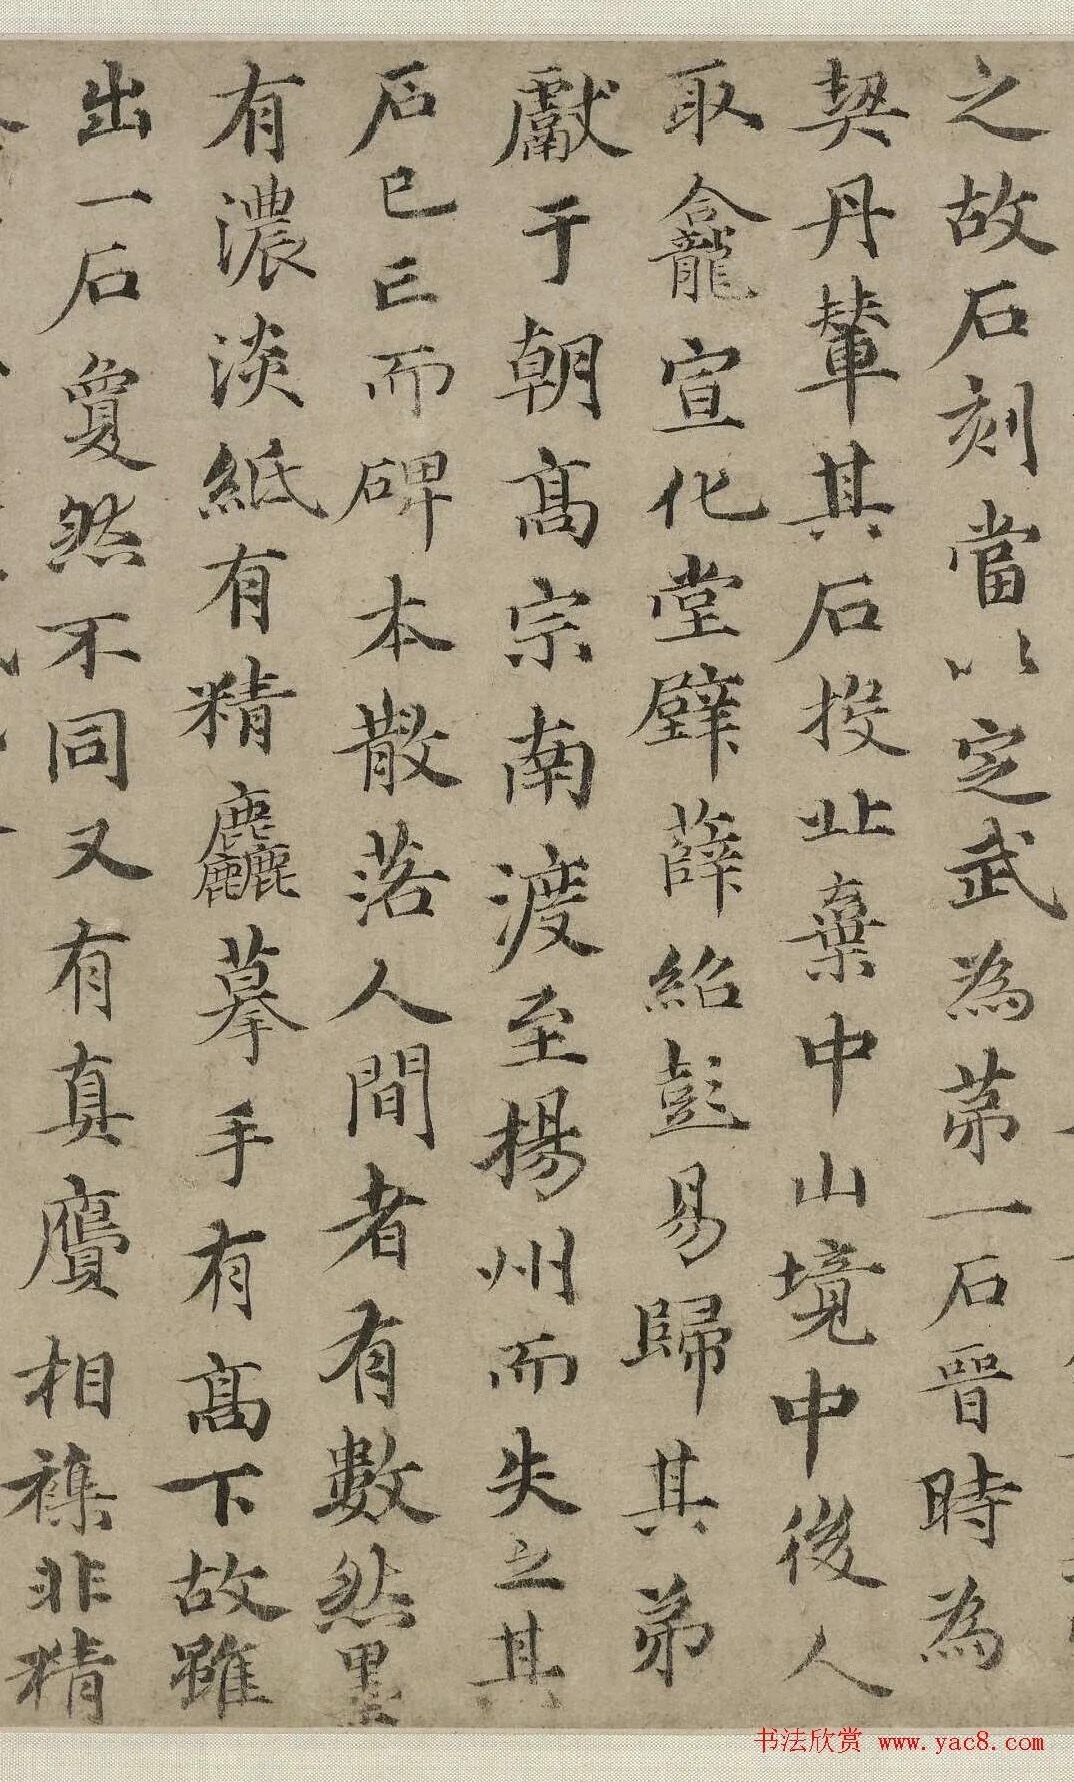 之故石刻當以定武為苐一石晉時為
契丹輦其石投北棄中山境中後人
取龕宣化堂壁薛紹彭易歸其弟
獻于朝高宗南渡至揚州而失之其
石已亡而碑本散落人間者有數然墨
有濃淡紙有精麤摹手有高下故雖
出一石敻然不同又有真贗相襍非精
书法欣赏 www.yac8.com